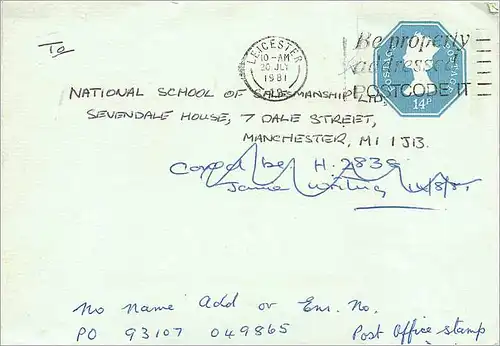 To
LEICESTER
10-AM
20 JLY
1981
Be properly
addressed
POSTCODE IT
POSTAGE POSTAGE
14P
NATIONAL SCHOOL OF SALESMANSHIP LTD,
SEVENDALE HOUSE, 7 DALE STREET,
MANCHESTER, M1 1JB.
H. 2839
Same writing 14/8/81
No Name Add or Enr. No.
PO 93107 049865 Post Office stamp